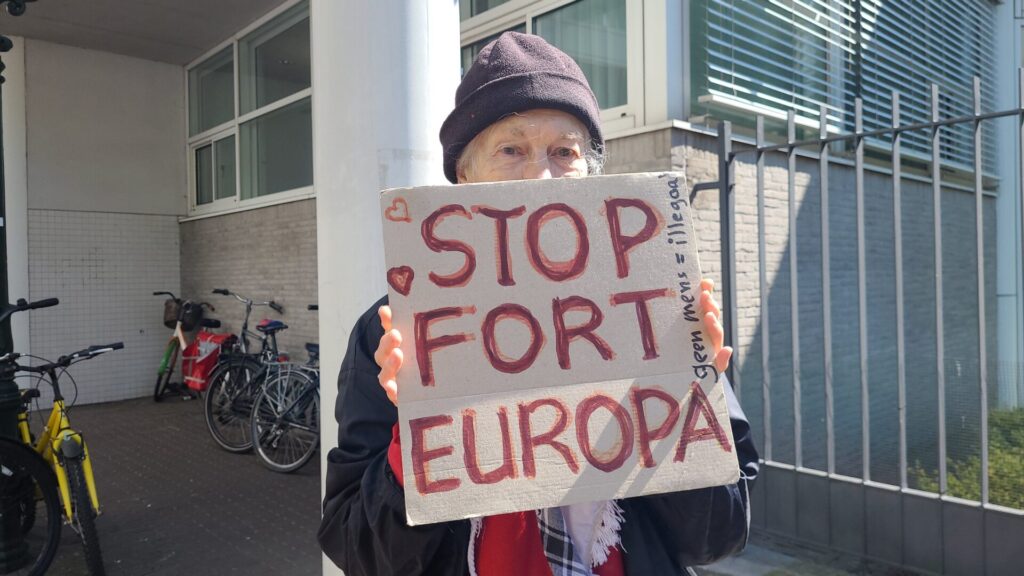 STOP
FORT
EUROPA
geen mens = illegaal